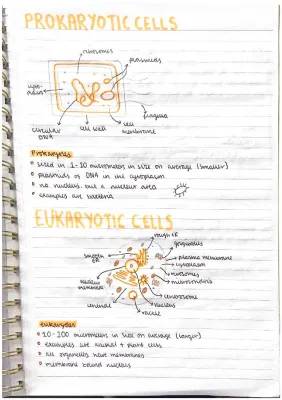 PROKARYOTIC CELLS
ribosomes
plasmids
cyto-
plasm
flagella
circular
DNA
cell wall
cell
membrane
Prokaryotes
sized in 1-10 micrometers in size on average (smaller)
plasmids of DNA in the cytoplasm
no nucleus but a nuclear area
examples are bacteria
EUKARYOTIC CELLS
rough ER
smooth
ER
plasma membrane
cytoplasm
ribosomes
mitochondria
nuclear
membrane
centrosome
centriole
nucleus
eukaryotes
10-100 micrometers in size on average (larger)
examples are animal + plant cells
all organelles have membranes
membrane bound nucleus